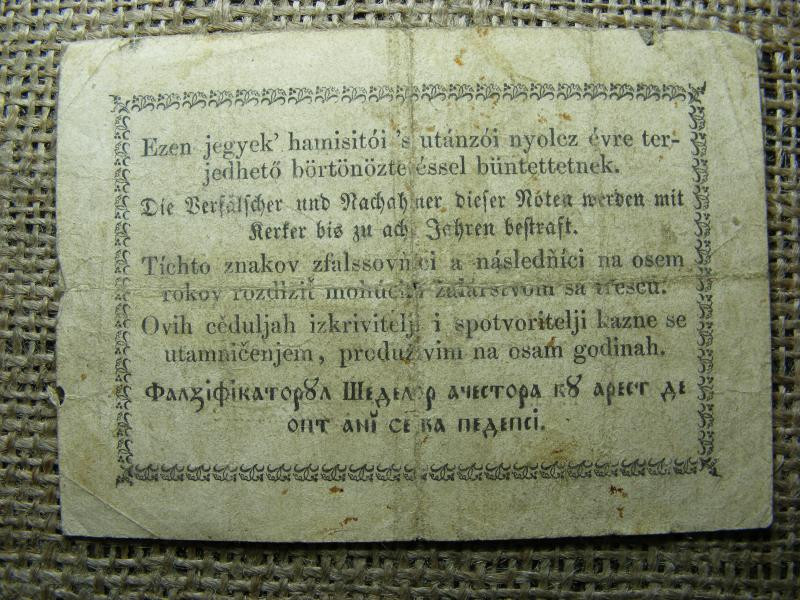 Ezen jegyek' hamisitói 's utánzói nyolcz évre ter-
jedhető börtönöztetéssel büntettetnek.
Die Verfälscher und Nachahmer dieser Noten werden mit
Kerker bis zu acht Jahren bestraft.
Tíchto znakov zfalssovňíci a následňíci na osem
rokov rozdížiť mohúcím žalárstvom sa trescú.
Ovih cěduljah izkrivitelji i spotvoritelji kazne se
utamničenjem, produživim na osam godinah.
Фалꙁіфікаторꙋл Шеделор ачестора кꙋ арест де
опт анĭ се ва педепсі.